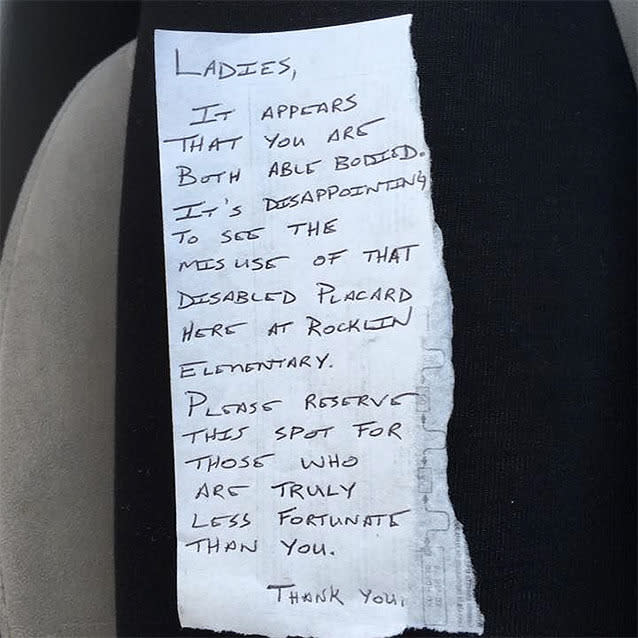 LADIES,
IT APPEARS
THAT YOU ARE
BOTH ABLE BODIED.
IT'S DISAPPOINTING
TO SEE THE
MISUSE OF THAT
DISABLED PLACARD
HERE AT ROCKLIN
ELEMENTARY.
PLEASE RESERVE
THIS SPOT FOR
THOSE WHO
ARE TRULY
LESS FORTUNATE
THAN YOU.
THANK YOU,